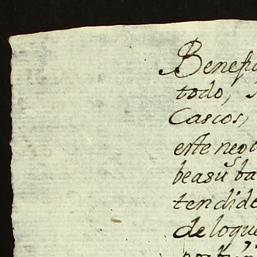 Benefi
todo,
Cascos,
este nego
beasu ba
tendide
de loque